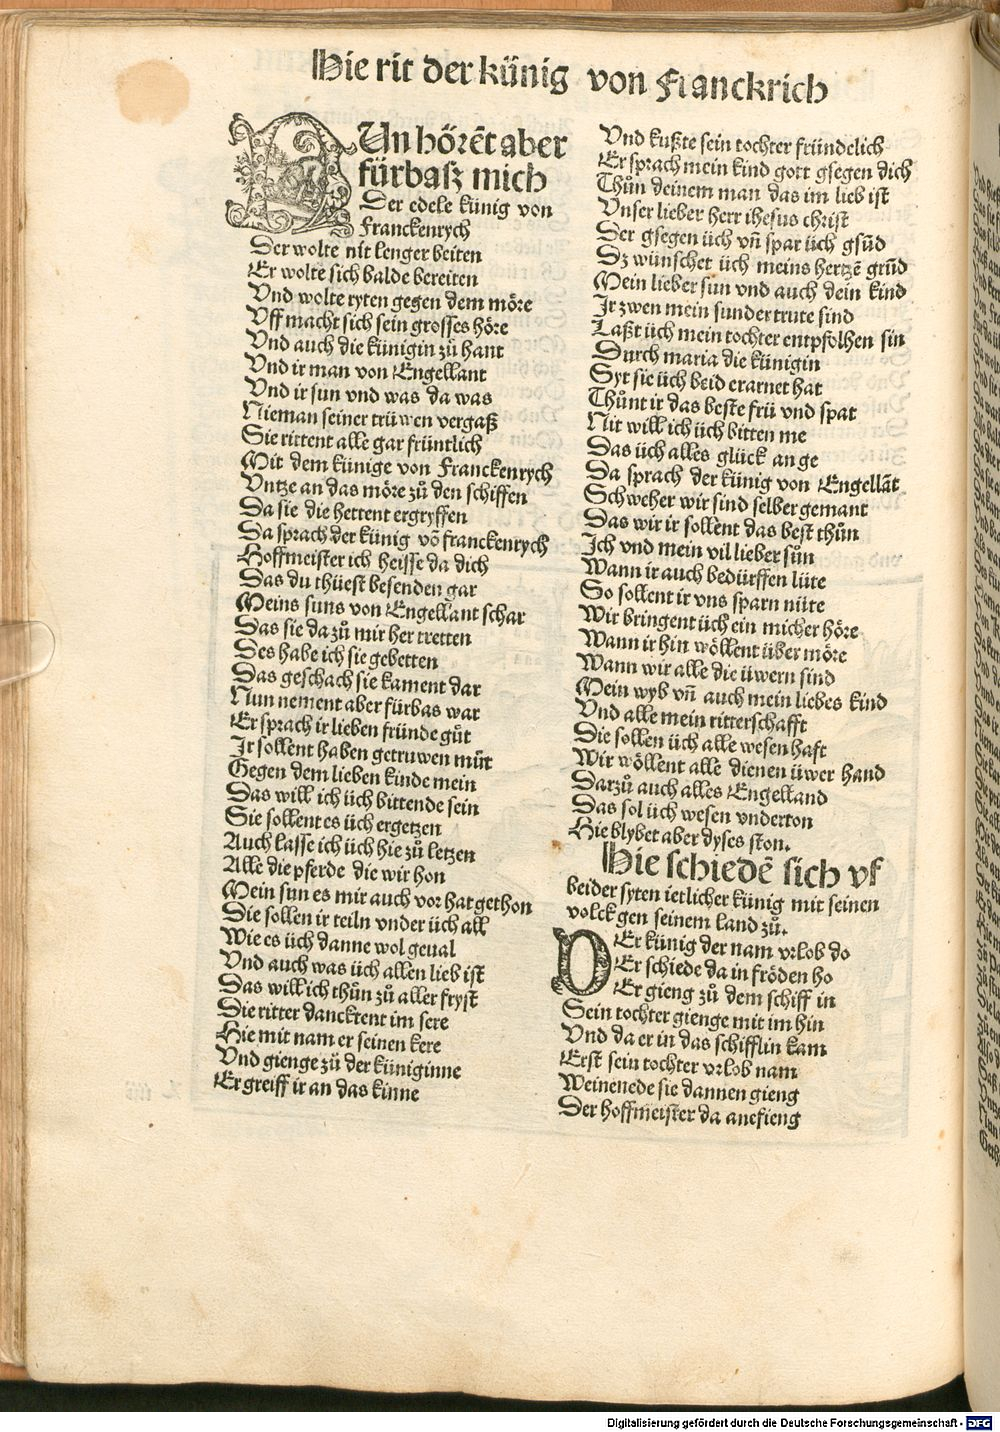 Hie rit der künig von Franckrich
NUn hörẽt aber
fürbasz mich
Der edele künig von
Franckenrych
Der wolte nit lenger beiten
Er wolte sich balde bereiten
Vnd wolte ryten gegen dem möre
Vff macht sich sein grosses höre
Vnd auch die künigin zů hant
Vnd ir man von Engellant
Vnd ir sun vnd was da was
Nieman seiner trüwen vergaß
Sie rittent alle gar früntlich
Mit dem künige von Franckenrych
Vntze an das möre zů den schiffen
Da sie die hettent ergryffen
Da sprach der künig võ franckenrych
Hoffmeister ich heisse da dich
Das du thüest besenden gar
Meins suns von Engellant schar
Das sie da zů mir her tretten
Des habe ich sie gebetten
Das geschach sie kament dar
Nun nement aber fürbas war
Er sprach ir lieben fründe gůt
Ir sollent haben getruwen můt
Gegen dem lieben kinde mein
Das will ich üch bittende sein
Sie sollent es üch ergetzen
Auch lasse ich üch hie zů letzen
Alle die pferde die wir hon
Mein sun es mir auch vor hat gethon
Die sollen ir teiln vnder üch all
Wie es üch danne wol geual
Vnd auch was üch allen lieb ist
Das will ich thůn zů aller fryst
Die ritter dancktent im sere
Hie mit nam er seinen kere
Vnd gienge zů der küniginne
Er greiff ir an das kinne
Vnd kußte sein tochter fründelich
Er sprach mein kind gott gsegen dich
Thůn deinem man das im lieb ist
Vnser lieber herr ihesus christ
Der gsegen üch vñ spar üch gsũd
Dz wünschet üch meins hertzẽ grũd
Mein lieber sun vnd auch dein kind
Ir zwen mein sunder trute sind
Laßt üch mein tochter entpfolhen sin
Durch maria die künigin
Syt sie üch beid erarnet hat
Thůnt ir das beste frü vnd spat
Nit will ich üch bitten me
Das üch alles glück an ge
Da sprach der künig von Engellãt
Schweher wir sind selber gemant
Das wir ir sollent das best thůn
Ich vnd mein vil lieber sůn
Wann ir auch bedürffen lüte
So sollent ir vns sparn nüte
Wir bringent üch ein micher höre
Wann ir hin wöllent über möre
Wann wir alle die üwern sind
Mein wyb vñ auch mein liebes kind
Vnd alle mein ritterschafft
Die sollen üch alle wesen haft
Wir wöllent alle dienen üwer hand
Darzů auch alles Engelland
Das sol üch wesen vnderton
Hie blybet aber dyses ston.
Hie schiedẽ sich vf
beider syten ietlicher künig mit seinen
volck gen seinem land zů.
DEr künig der nam vrlob do
Er schiede da in fröden ho
Er gieng zů dem schiff in
Sein tochter gienge mit im hin
Vnd da er in das schifflin kam
Erst sein tochter vrlob nam
Weinenede sie dannen gieng
Der hoffmeister da anefieng
Digitalisierung gefördert durch die Deutsche Forschungsgemeinschaft - DFG